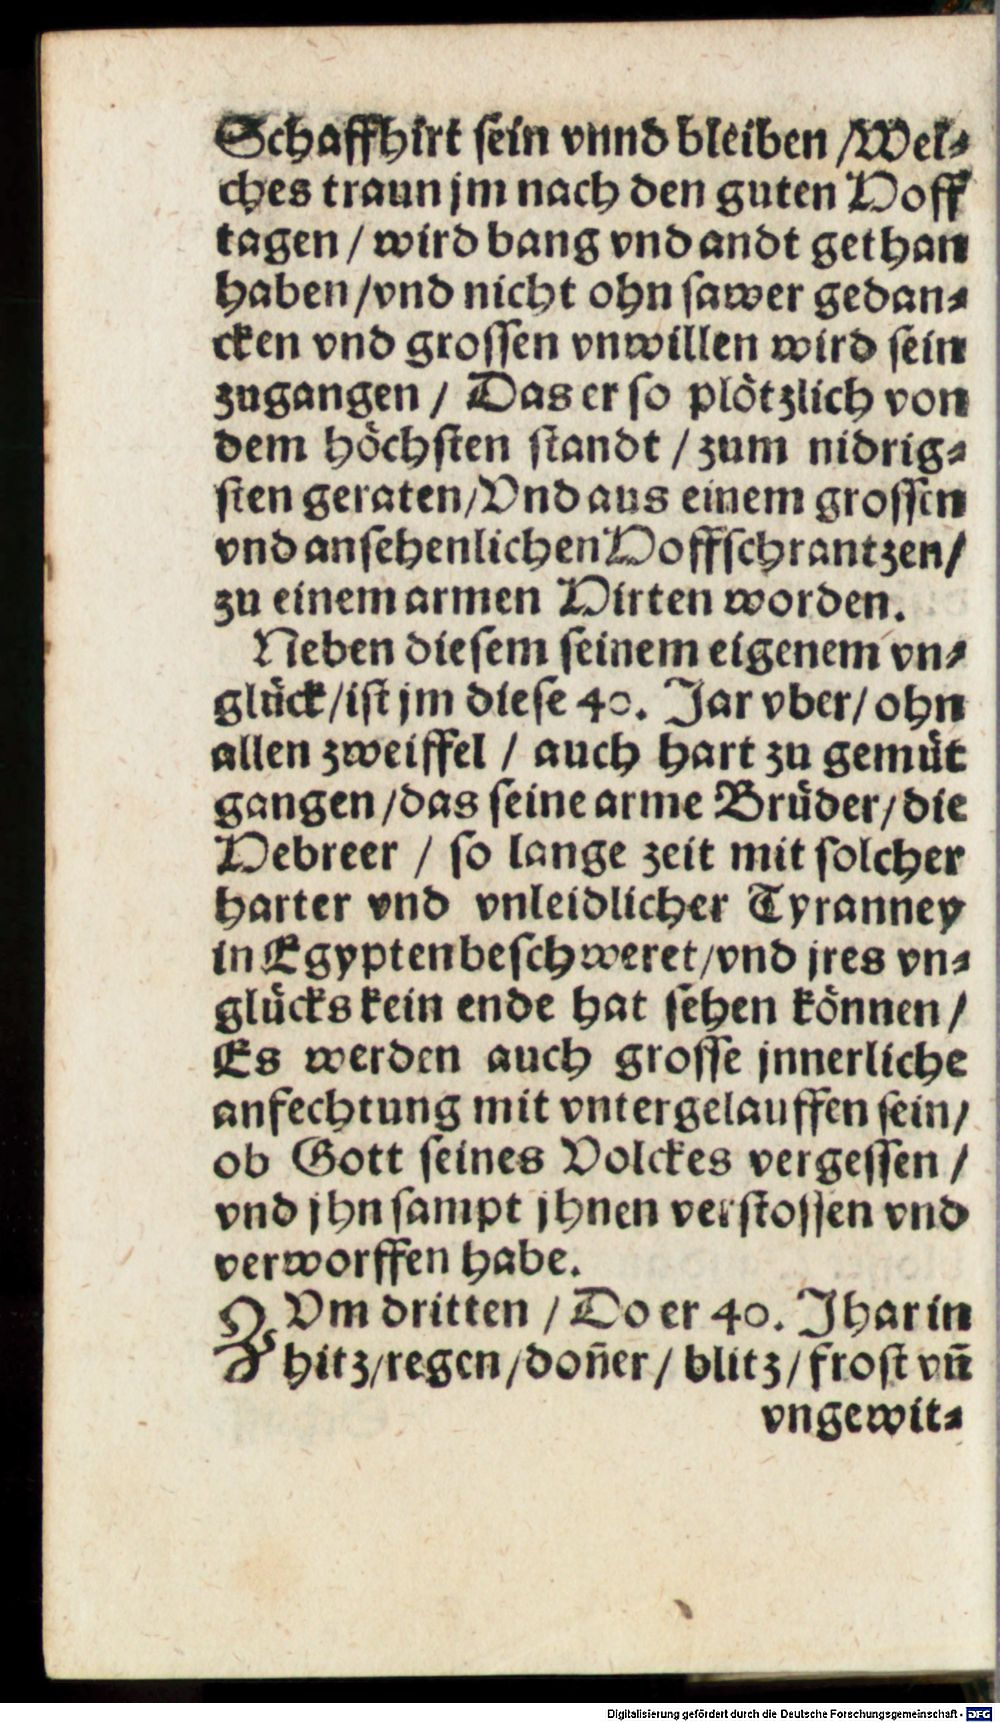 Schaffhirt sein vnnd bleiben /Wel⸗
ches traun jm nach den guten Hoff
tagen / wird bang vnd andt gethan
haben /vnd nicht ohn sawer gedan⸗
cken vnd grossen vnwillen wird sein
zugangen / Das er so plötzlich von
dem höchsten standt / zum nidrig⸗
sten geraten/Vnd aus einem grossen
vnd ansehenlichen Hoffschrantzen/
zu einem armen Hirten worden.
Neben diesem seinem eigenem vn⸗
glück/ist jm diese 40. Jar vber/ ohn
allen zweiffel / auch hart zu gemüt
gangen /das seine arme Brüder/ die
Hebreer / so lange zeit mit solcher
harter vnd vnleidlicher Tyranney
in Egypten beschweret/vnd jres vn⸗
glücks kein ende hat sehen können /
Es werden auch grosse jnnerliche
anfechtung mit vntergelauffen sein/
ob Gott seines Volckes vergessen /
vnd jhn sampt jhnen verstossen vnd
verworffen habe.
ZVm dritten / Do er 40. Jhar in
hitz/regen /doñer/ blitz/ frost vñ
vngewit⸗
Digitalisierung gefördert durch die Deutsche Forschungsgemeinschaft - DFG